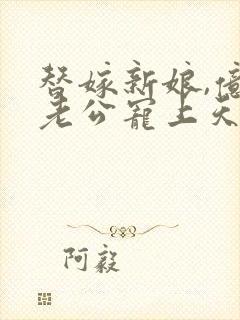 替嫁新娘,億
老公寵上天
阿毅